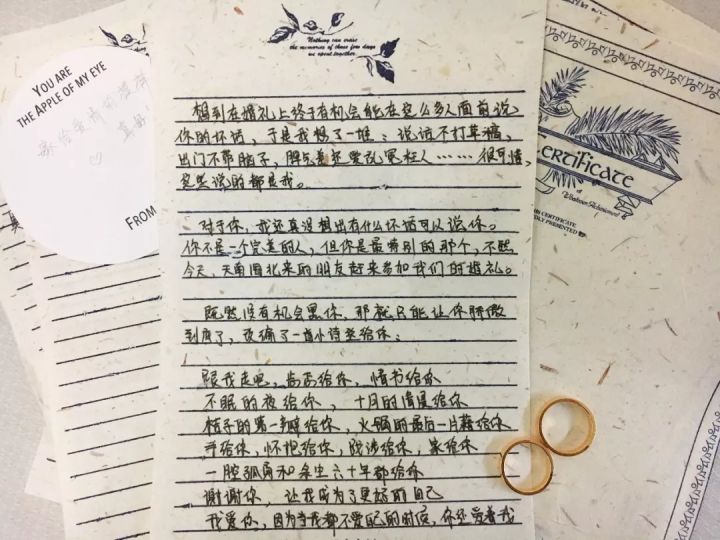 YOU ARE
THE APPLE OF MY EYE
FROM
Nothing can erase
the memories of these few days
we spent together.
想到在婚礼上终于有机会能在这么多人面前说
你的坏话，于是我想了一堆：说话不打草稿，
出门不带脑子，脾气差还爱乱冤枉人……很可惜，
这些说的都是我。
对于你，我还真没想出有什么坏话可以说你。
你不是一个完美的人，但你是最特别的那个，不然
今天，天南海北来的朋友赶来参加我们的婚礼。
既然没有机会黑你，那就只能让你骄傲
到底了，改编了一首小诗送给你：
跟我走吧，尚高给你，情书给你
不眠的夜给你，十月的情晨给你
桔子的第一瓣给你，火锅的最后一片藕给你
手给你，怀抱给你，跋涉给你，家给你
一腔孤勇和余生六十年都给你
谢谢你，让我成为了更好的自己
我爱你，因为当我都不爱自己的时候，你还爱着我
Certificate